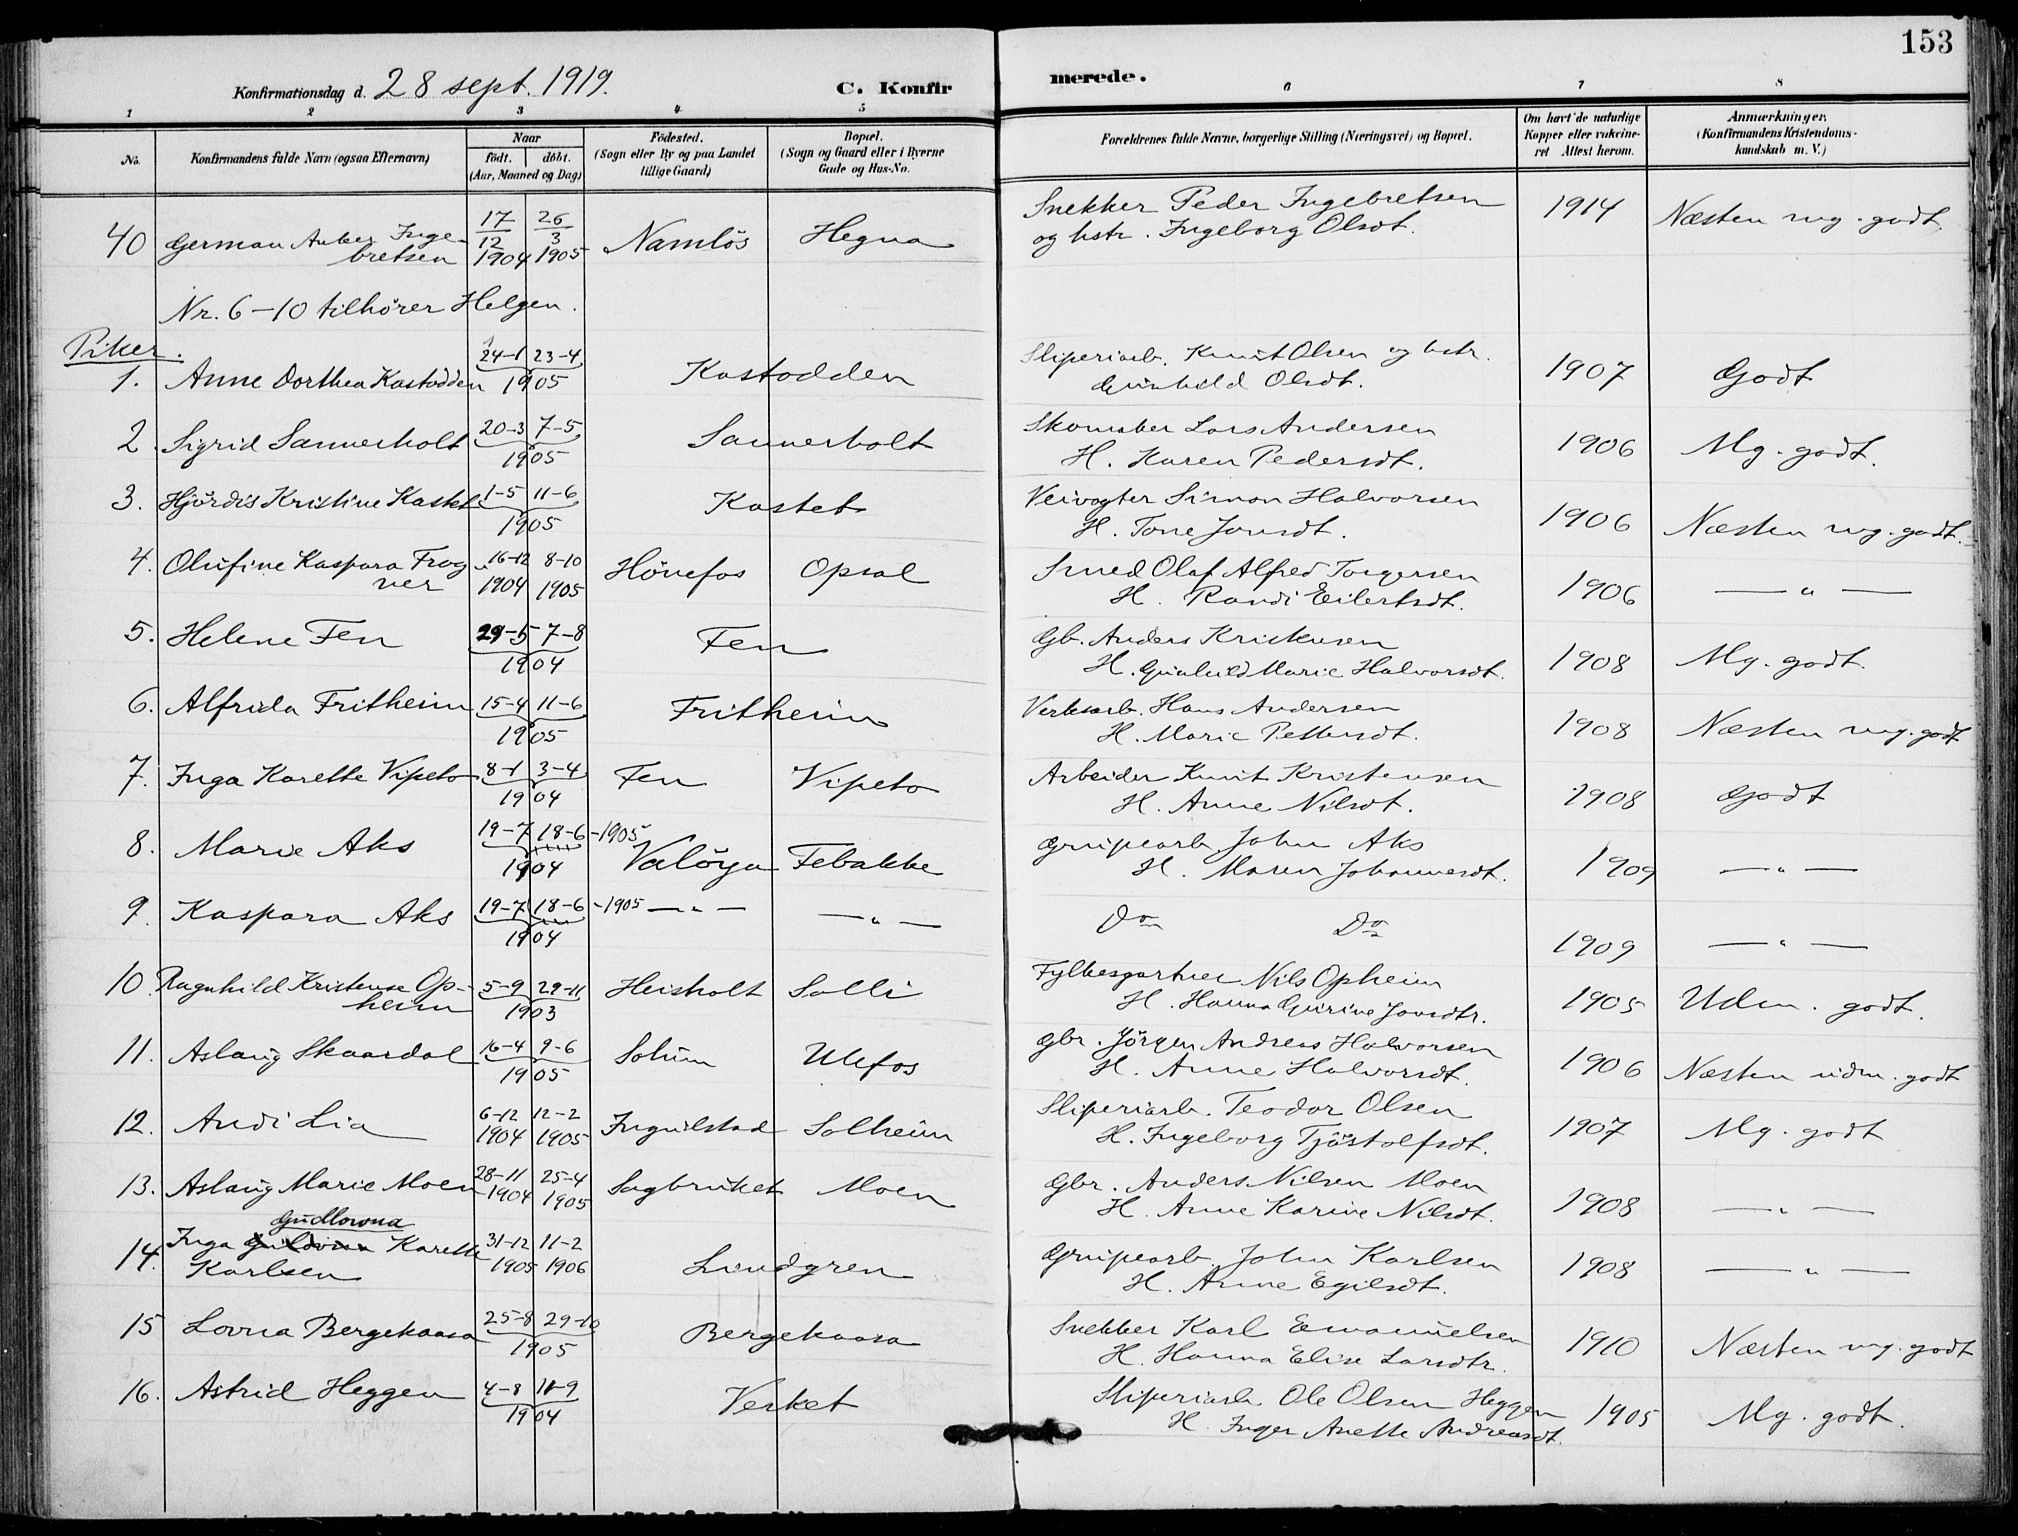 153
Konfirmationsdag d. 28 sept. 1919. C. Konfirmerede.
1 2 3 4 5 6 7 8
No. Konfirmandens fulde Navn (ogsaa Efternavn) Naar födt. döbt. (Aar, Maaned og Dag) Födested. (Sogn eller By og paa Landet tillige Gaard) Bopæl. (Sogn og Gaard eller i Byerne Gade og Hus-No. Forældrenes fulde Navne, borgerlige Stilling (Næringsvei) og Bopæl. Om havt de naturlige Kopper eller vakcineret. Attest herom. Anmærkninger. (Konfirmandens Kristendomskundskab m. V.)
40 German Anker Ingebretsen 17/12 1904 26/3 1905 Namlös Hegna Snekker Peder Ingebretsen og hstr. Ingeborg Olsdt. 1914 Næsten mg. godt
Nr. 6-10 tilhörer Helgen.
Piker.
1. Anne Dorthea Kastodden 24-1 23-4 1905 Kastodden Sliperiarb. Knut Olsen og hstr. Gunhild Olsdt. 1907 Godt
2. Sigrid Sannerholt 20-3 7-5 1905 Sannerholt Skomaker Lars Andersen H. Karen Pedersdt. 1906 Mg. godt.
3. Hjördis Kristine Kastet 1-5 11-6 1905 Kastet Veivogter Simon Halvorsen H. Tone Jonsdt. 1906 Næsten mg. godt.
4. Olufine Kaspara Frogner 16-12 1904 8-10 1905 Hönefos Opsal Smed Olaf Alfred Torgersen H. Randi Eilertsdt. 1906 — " —
5. Helene Fen 29-5 7-8 1904 Fen Gb. Anders Kristensen H. Gunhild Marie Halvorsdt. 1908 Mg. godt.
6. Alfrida Fritheim 15-4 11-6 1905 Fritheim Verksarb. Hans Andersen H. Marie Pettersdt. 1908 Næsten mg. godt
7. Inga Karette Vipeto 8-1 3-4 1904 Fen Vipeto Arbeider Knut Kristensen H. Anne Nilsdt. 1908 Godt
8. Marie Aks 19-7 18-6-1905 1904 Valöya Febakke Grupearb. John Aks H. Maren Johannesdt. 1909 — " —
9. Kaspara Aks 19-7 18-6-1905 1904 — " — — " — Do Do 1909 — " —
10. Ragnhild Kristense Opheim 5-9 29-11 1903 Heisholt Solli Fylkesgartner Nils Opheim H. Hanna Gurine Jonsdtr. 1905 Udm. godt.
11. Aslaug Skaardal 16-4 9-6 1905 Solum Ulefos Gbr. Jörgen Andreas Halvorsen H. Anne Halvorsdt. 1906 Næsten udm. godt
12. Andi Lia 6-12 1904 12-2 1905 Ingulstad Solheim Sliperiarb. Teodor Olsen H. Ingeborg Tjöstolfsdt. 1907 Mg. godt
13. Aslaug Marie Moen 28-11 1904 25-4 1905 Sagbruket Moen Gbr. Anders Nilsen Moen H. Anne Karine Nilsdt. 1908 — " —
Gudlovna
14. Inga Karette Karlsen 31-12 1905 11-2 1906 Lindgren Grupearb. John Karlsen H. Anne Egilsdt. 1908 — " —
15 Lovna Bergekaasa 25-8 29-10 1905 Bergekaasa Snekker Karl Emanuelsen H. Hanna Elise Larsdtr. 1910 Næsten mg. godt
16. Astrid Heggen 4-8 11-9 1904 Verket Sliperiarb. Ole Olsen Heggen H. Inger Anette Andreasdt. 1905 Mg. godt.